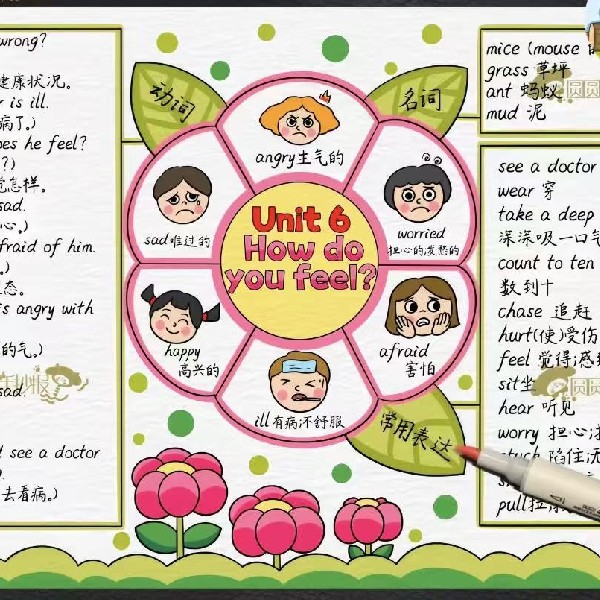 wrong?
康状况。
is ill.
病了。)
he feel?
?)
怎样。
sad.
心。)
of him.
态。
angry with
的气。)
sad
see a doctor
去看病。)
动词
名词
常用表达
Unit 6
How do
you feel?
angry 生气的
worried
担心的凌愁的
afraid
害怕
ill 有病不舒服
happy
高兴的
sad 难过的
mice (mouse
grass 草坪
ant 蚂蚁
mud 泥
see a doctor
wear 穿
take a deep
深深吸一口气
count to ten
数到十
chase 追赶
hurt(使)受伤
feel 觉得;感
sit 坐
hear 听见
worry 担心
陷住
pull 拉